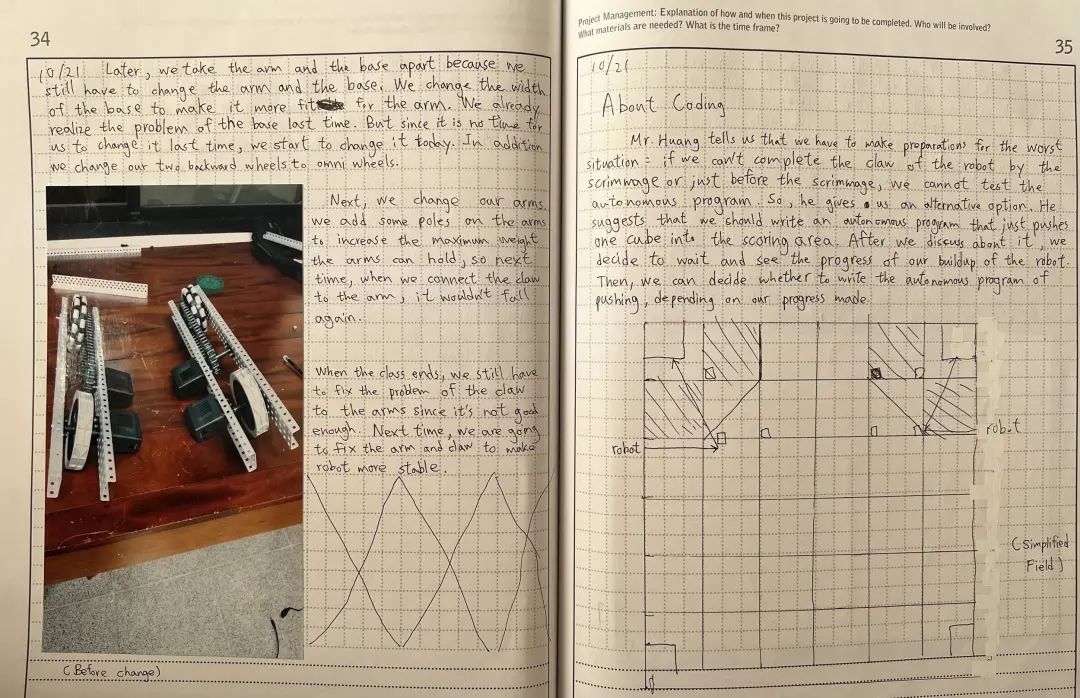 34
10/21 Later, we take the arm and the base apart because we
still have to change the arm and the base. We change the width
of the base to make it more fit for the arm. We already
realize the problem of the base last time. But since it is no time for
us to change it last time, we start to change it today. In addition,
we change our two backward wheels to omni wheels.
Next, we change our arms.
we add some poles on the arms
to increase the maximum weight
the arms can hold, so next
time, when we connect the claw
to the arm, it wouldn't fall
again.
When the class ends, we still have
to fix the problem of the claw
to the arms since it's not good
enough. Next time, we are going
to fix the arm and claw to make
robot more stable.
(Before change)
Project Management: Explanation of how and when this project is going to be completed. Who will be involved?
What materials are needed? What is the time frame?
35
10/21
About Coding
Mr. Huang tells us that we have to make preparations for the worst
situation: if we can't complete the claw of the robot by the
scrimwage or just before the scrimwage, we cannot test the
autonomous program. So, he gives us an alternative option. He
suggests that we should write an autonomous program that just pushes
one cube into the scoring area. After we discuss about it, we
decide to wait and see the progress of our buildup of the robot.
Then, we can decide whether to write the autonomous program of
pushing, depending on our progress made.
robot
robot
(Simplified
Field)